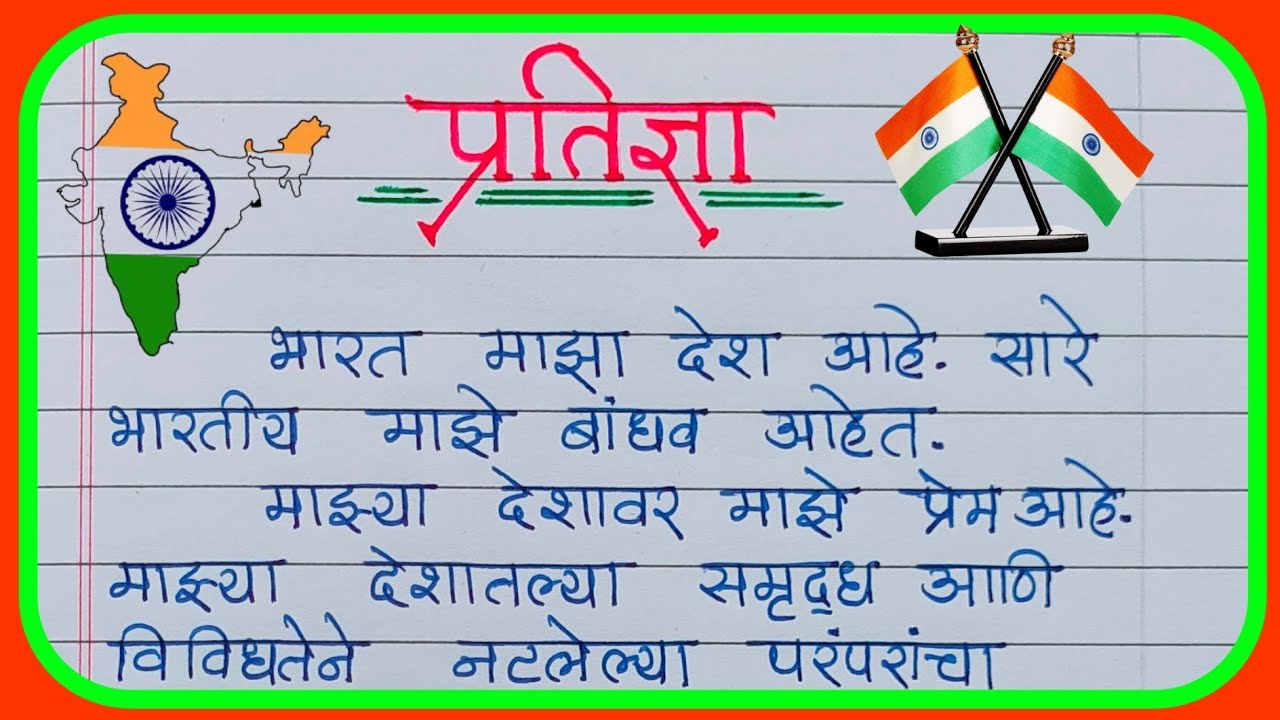 प्रतिज्ञा
भारत माझा देश आहे. सारे
भारतीय माझे बांधव आहेत.
माझ्या देशावर माझे प्रेम आहे.
माझ्या देशातल्या समृद्ध आणि
विविधतेने नटलेल्या परंपरांचा